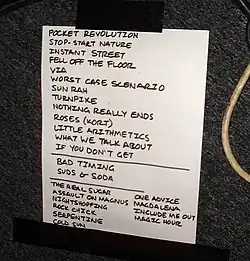 POCKET REVOLUTION
STOP-START NATURE
INSTANT STREET
FELL OFF THE FLOOR
VIA
WORST CASE SCENARIO
SUN RAH
TURNPIKE
NOTHING REALLY ENDS
ROSES (KORT)
LITTLE ARITHMETICS
WHAT WE TALK ABOUT
IF YOU DON'T GET
BAD TIMING
SUDS & SODA
THE REAL SUGAR
ASSAULT ON MAGNUS
NIGHTSHOPPING
ROCK CHICK
SERPENTINE
COLD SUN
ONE ADVICE
MAGDALENA
INCLUDE ME OUT
MAGIC HOUR